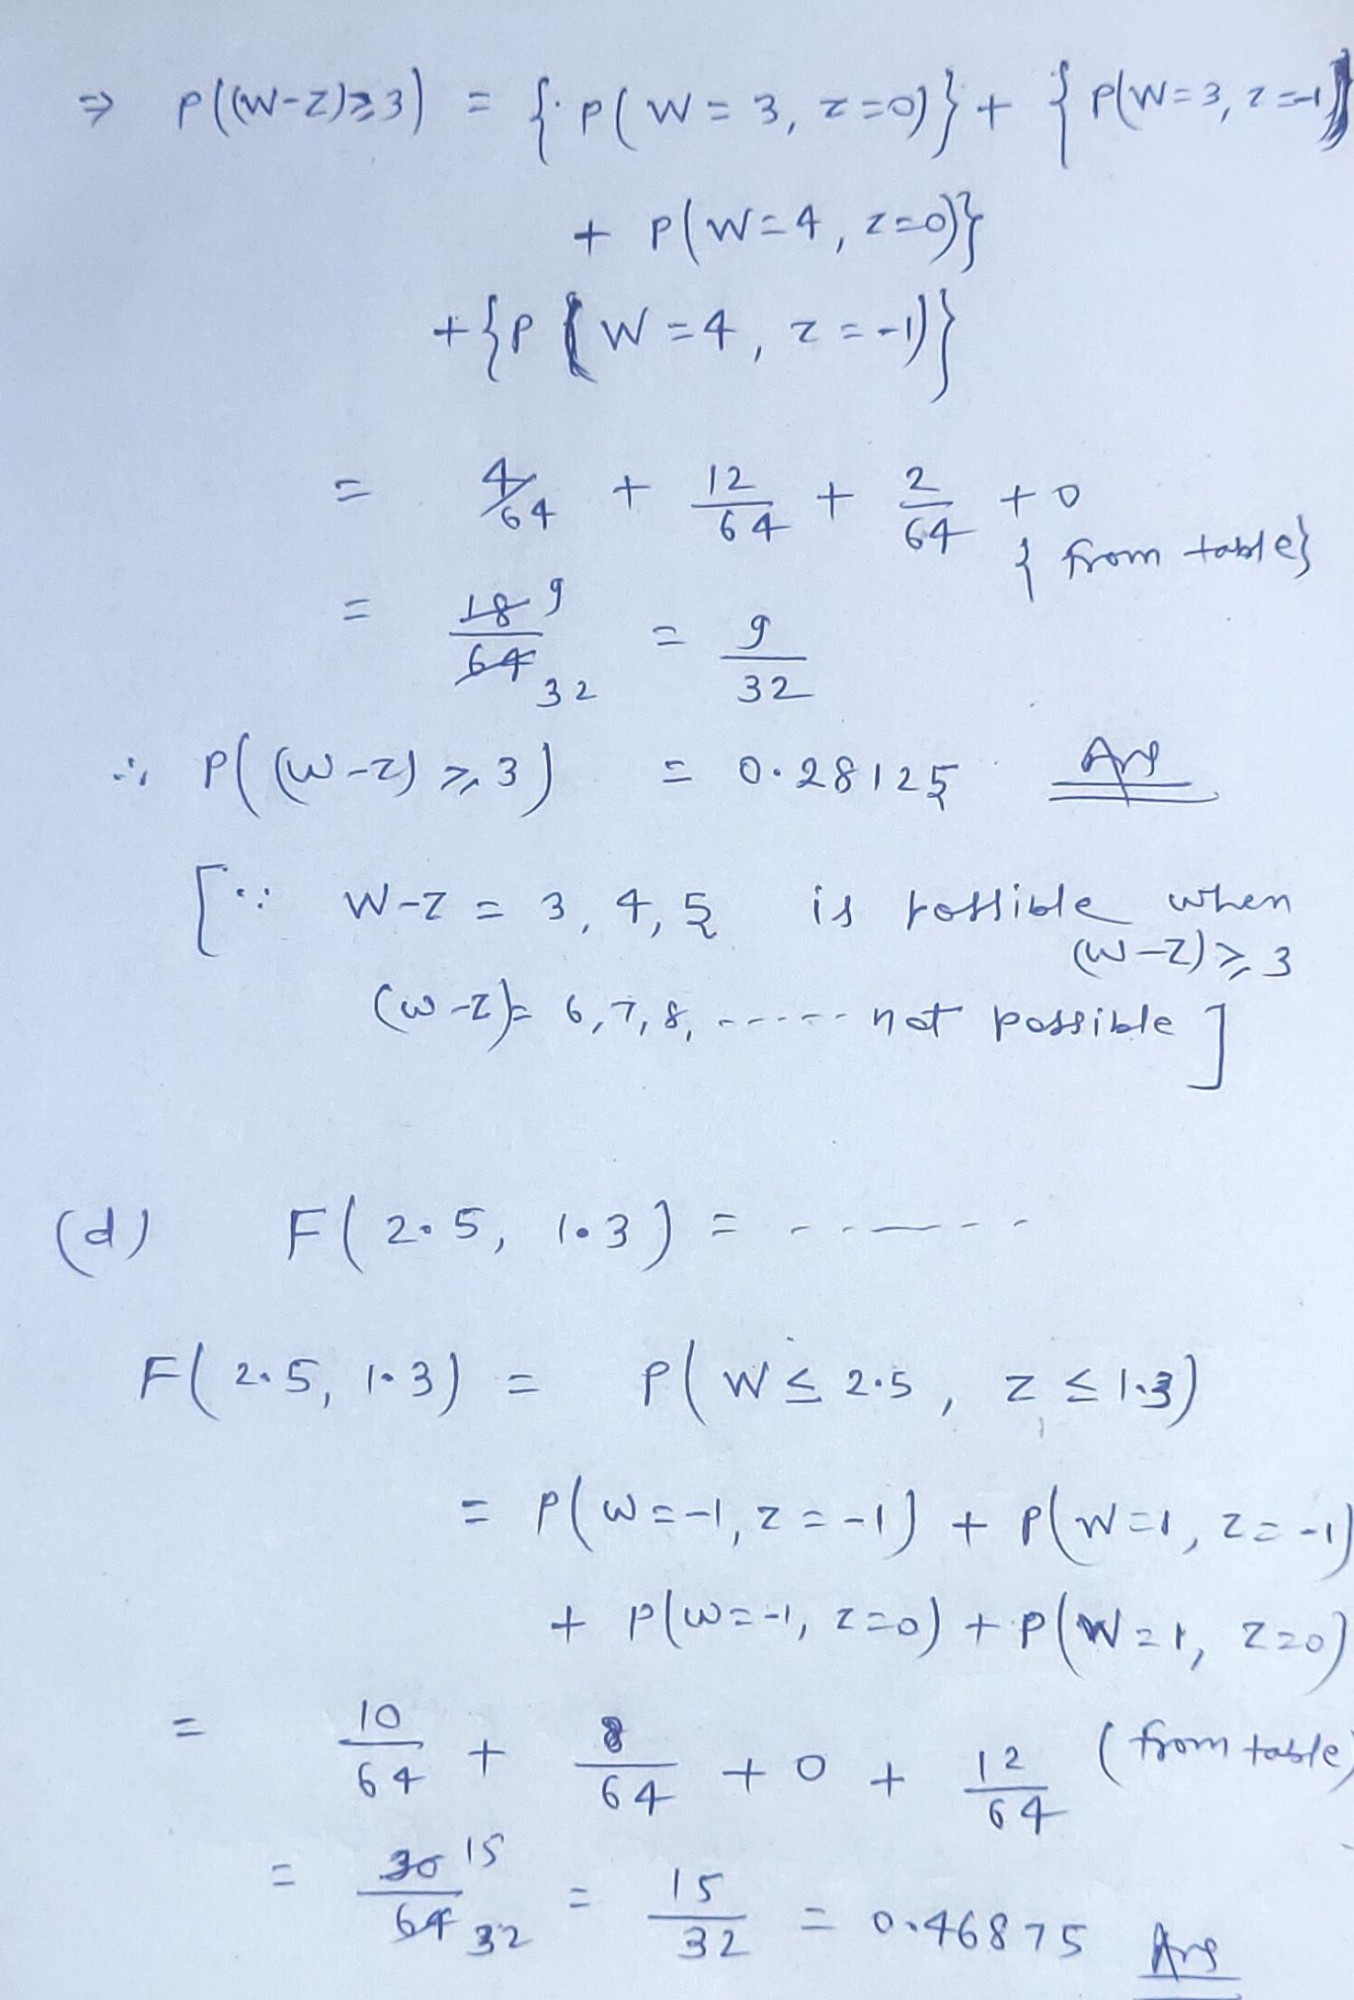 ⇒ P((W-Z)≥3) = {P(W=3, Z=0)} + {P(W=3, Z=-1)
+ P(W=4, Z=0)}
+{P(W=4, Z=-1)}
= 4/64 + 12/64 + 2/64 + 0
{from table}
= 18/64 9 32 = 9/32
∴ P((W-Z) ≥ 3) = 0.28125 Ans
[∵ W-Z = 3, 4, 5 is possible when
(W-Z) ≥ 3
(W-Z) = 6, 7, 8, ------ not possible]
(d) F(2.5, 1.3) = ------
F(2.5, 1.3) = P(W ≤ 2.5, Z ≤ 1.3)
= P(W=-1, Z=-1) + P(W=1, Z=-1)
+ P(W=-1, Z=0) + P(W=1, Z=0)
= 10/64 + 8/64 + 0 + 12/64 (from table)
= 30/64 15 32 = 15/32 = 0.46875 Ans